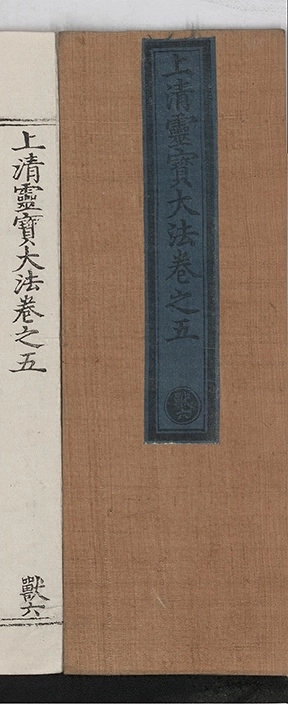 上清靈寶大法卷之五
獸六
上清靈寶大法卷之五
獸六